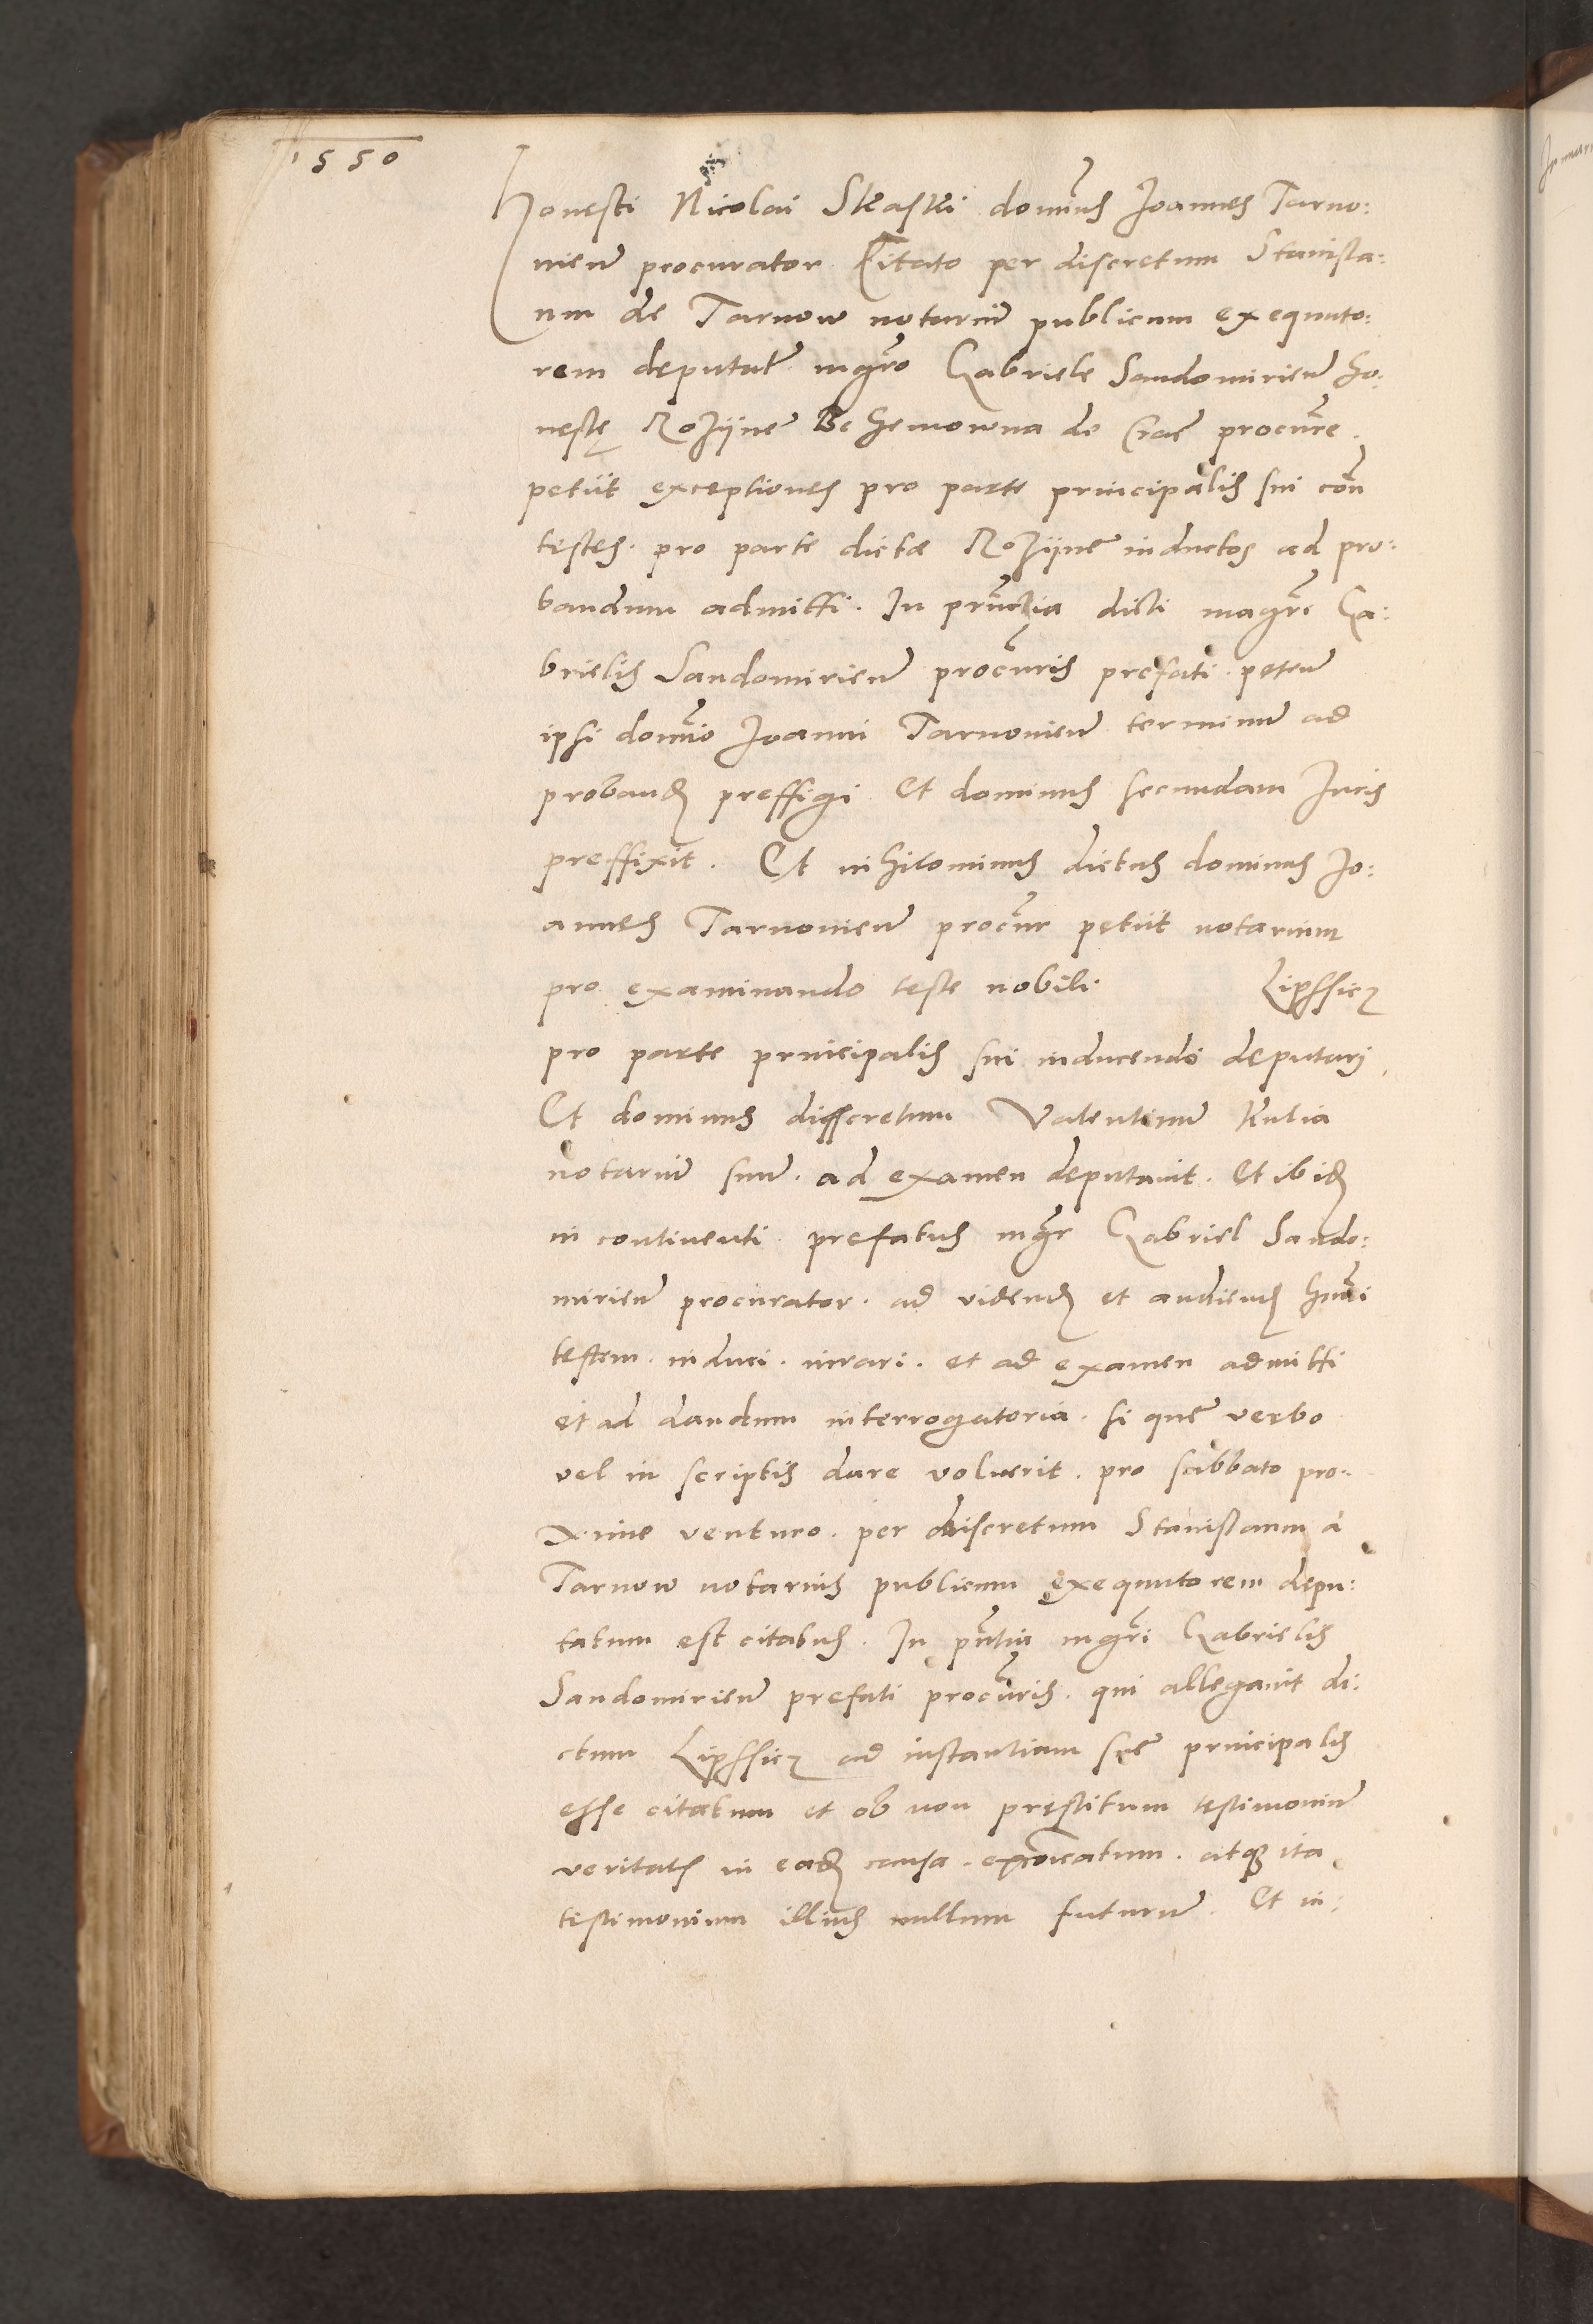 1550
Honesti Nicolai Skaski dominus Joannes Tarno:
vien procurator Citato per discretum Stanisla:
um de Tarnow notariu publicum exequuto:
rem deputat mgro Gabriele Sandomirien ho:
neste Rozijne Bohemowna de Crac procure.
petiit exceptiones pro parte principalis sui con
testes. pro parte dictæ Rozijne inductos ad pro:
bandum admitti. In prntia dicti magri Ga:
brielis Sandomirien procuris prefati. peten
ipsi domino Joanni Tarnovien terminu ad
proband preffigi Et dominus secundam Juris
preffixit. Et nihilominus dictus dominus Jo:
annes Tarnovien procur petiit notarium
pro examinando teste nobili Lipssicz
pro parte principalis sui inducendo deputari
Et dominus discretum Valentinu Kulia
notariu suu. ad examen deputavit. Et ibid
in continenti prefatus mgr Gabriel Sando:
mirien procurator. ad vidend et audiend hmoi
testem. induci. iurari. et ad examen admitti
et ad dandum interrogatoria. si que verbo
vel in scriptis dare voluerit. pro sabbato pro:
xime venturo. per discretum Stanislaum a
Tarnow notarius publicum exequutorem depu:
tatum est citatus. In pntia mgri Gabrielis
Sandomirien prefati procuris. qui allegavit di:
ctum Lipssicz ad instantiam sue principalis
esse citatum et ob non prestitum testimoniu
veritatis in ead causa. excoicatum. atq ita
testimonium illius nullum futuru. Et in: